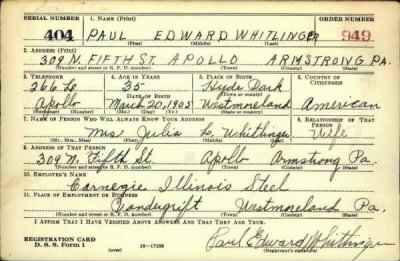 SERIAL NUMBER 1. NAME (Print) ORDER NUMBER
404 PAUL EDWARD WHITLINGER 949
(First) (Middle) (Last)
2. ADDRESS (Print)
309 N. FIFTH ST. APOLLO ARMSTRONG PA.
(Number and street or R. F. D. number) (Town) (County) (State)
3. TELEPHONE 4. AGE IN YEARS 5. PLACE OF BIRTH 6. COUNTRY OF CITIZENSHIP
266 L 35 Hyde Park
DATE OF BIRTH (Town or county)
Apollo March 20, 1905 Westmoreland American
(Exchange) (Number) (Mo.) (Day) (Yr.) (State or country)
7. NAME OF PERSON WHO WILL ALWAYS KNOW YOUR ADDRESS 8. RELATIONSHIP OF THAT PERSON
Mrs. Julia L. Whitlinger Wife
(Mr., Mrs., Miss) (First) (Middle) (Last)
9. ADDRESS OF THAT PERSON
309 N. Fifth St. Apollo Armstrong Pa.
(Number and street or R. F. D. number) (Town) (County) (State)
10. EMPLOYER'S NAME
Carnegie Illinois Steel
11. PLACE OF EMPLOYMENT OR BUSINESS
Vandergrift Westmoreland Pa.
(Number and street or R. F. D. number) (Town) (County) (State)
I AFFIRM THAT I HAVE VERIFIED ABOVE ANSWERS AND THAT THEY ARE TRUE.
REGISTRATION CARD
D. S. S. Form 1 (over) 16-17105 Paul Edward Whitlinger
(Registrant's signature)